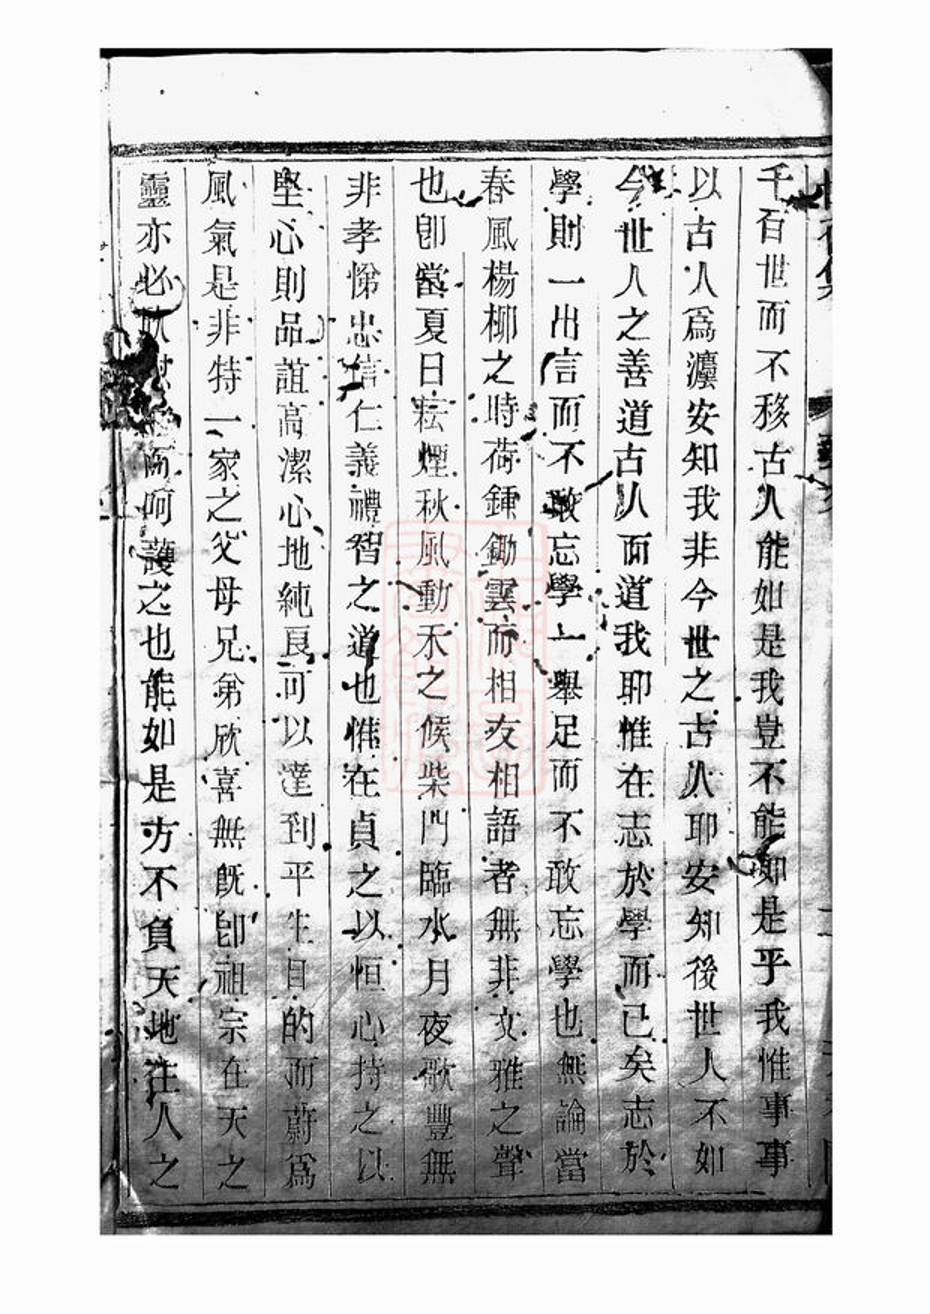 千百世而不移古人能如是我豈不能如是乎我惟事事
以古人爲瀍安知我非今世之古人耶安知後世人不如
今世人之善道古人而道我耶惟在志於學而已矣志於
學則一出言而不敢忘學一舉足而不敢忘學也無論當
春風楊柳之時荷鍾鋤雲而相友相語者無非文雅之聲
也卽當夏日耘煙秋風動禾之候柴門臨水月夜歌豐無
非孝悌忠信仁義禮智之道也惟在貞之以恒心持之以
堅心則品誼高潔心地純良可以達到平生目的而蔚爲
風氣是非特一家之父母兄弟欣喜無旣卽祖宗在天之
靈亦必呵護之也能如是方不負天地生人之